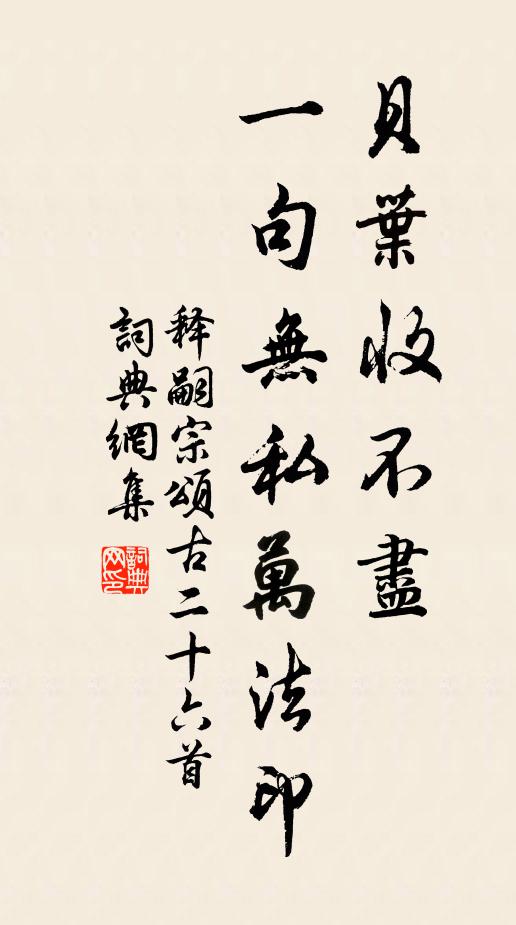 貝葉收不盡
一句無私萬法印
释嗣宗頌古二十六首
詞典網集
詞典網印